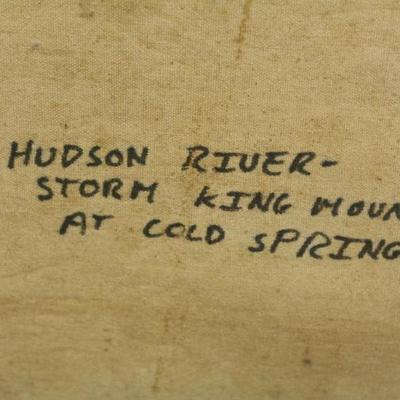 HUDSON RIVER-
STORM KING MOUN
AT COLD SPRING